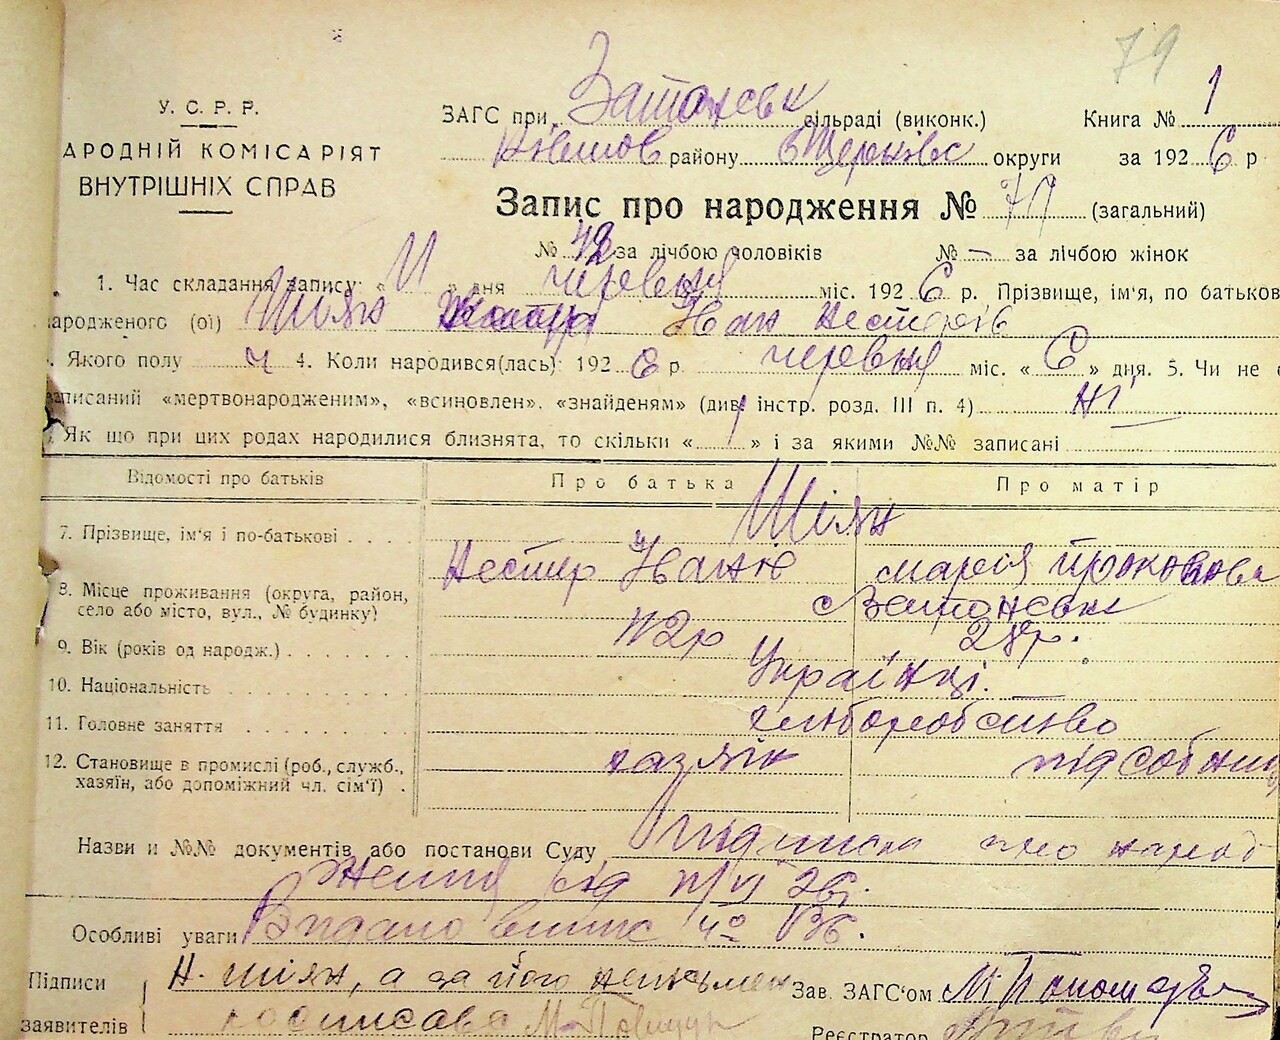 79
У. С. Р. Р.
АРОДНІЙ КОМІСАРІЯТ
ВНУТРІШНІХ СПРАВ
ЗАГС при Затонськ сільраді (виконк.) Книга № 1
району округи за 1926 р
Запис про народження № (загальний)
№ за лічбою чоловіків № — за лічбою жінок
1. Час складання запису: « 11 » дня червня міс. 1926 р. Прізвище, ім'я, по батьков
ародженого (ої) Шіян Іван Несторів
. Якого полу ч 4. Коли народився(лась): 1926 р. червня міс. « 6 » дня. 5. Чи не
записаний «мертвонародженим», «всиновлен», «знайденям» (див. інстр. розд. III п. 4) ні
Як що при цих родах народилися близнята, то скільки « » і за якими №№ записані
Відомості про батьків Про батька Про матір
7. Прізвище, ім'я і по-батькові . . . . Шіян
Нестір Іванів Марія
8. Місце проживання (округа, район, село або місто, вул., № будинку) с Затонськ
9. Вік (років од народж.) . . . . 28р.
10. Національність . . . . Українці.
11. Головне заняття . . . . хліборобство
12. Становище в промислі (роб., служб., хазяїн, або допоміжний чл. сім'ї) . хазяїн підсобниц
Назви и №№ документів або постанови Суду підписка про народ
ження від
Особливі уваги Видано випис
Підписи Н. Шіян, а за його неписьмен Зав. ЗАГС'ом М. Пономар
заявителів росписався М. Реєстратор